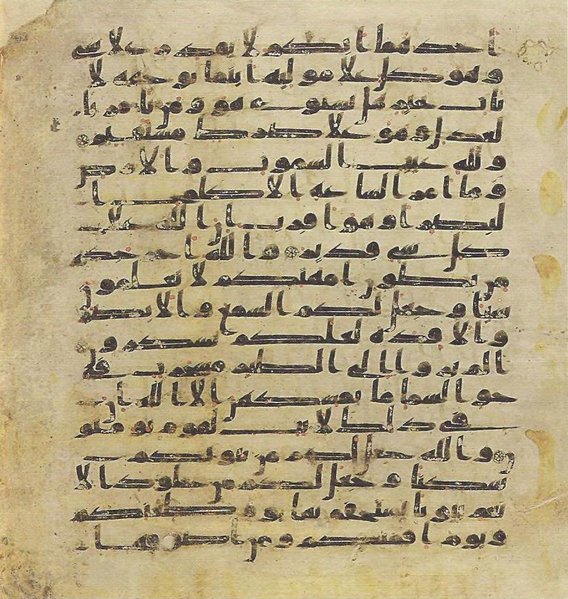 احدهما ابكم لا يقدر على شي
وهو كل على موليه اينما يوجهه لا
يات بخير هل يستوي هو ومن يامر با
لعدل وهو على صرط مستقيم
ولله غيب السموت والارض
وما امر الساعة الا كلمح ا
لبصر او هو اقرب ان الله على
كل شي قدير والله اخرجكم
من بطون امهتكم لا تعلمون
شيا وجعل لكم السمع والابصر
والافدة لعلكم تشكرون
الم يروا الى الطير مسخرت في
جو السما ما يمسكهن الا الله ان
في ذلك لايت لقوم يومنو
ن والله جعل لكم من بيوتكم
سكنا وجعل لكم من جلود الا
نعم بيوتا تستخفونها يوم ظعنكم
ويوم اقمتكم ومن اصوافها